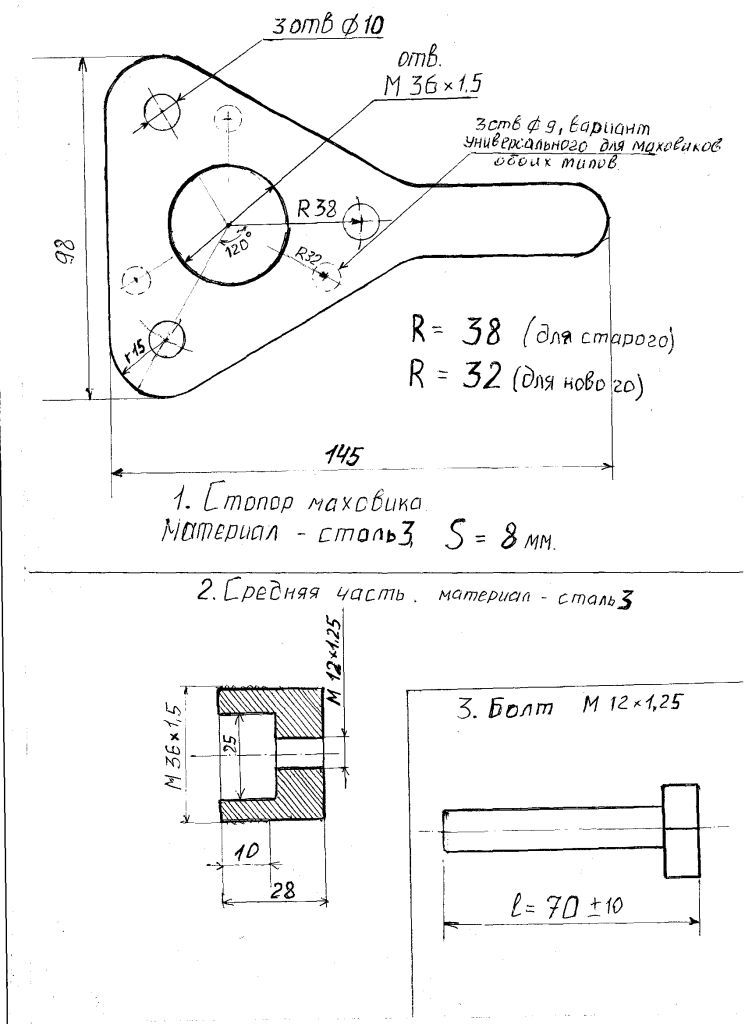 3 отв ϕ 10
отв.
М 36×1.5
3 отв ϕ 9, вариант
универсального для маховиков
обоих типов.
R 38
120°
R32
98
r 15
R = 38 (для старого)
R = 32 (для нового)
145
1. Стопор маховика.
Материал - сталь 3, S = 8 мм.
2. Средняя часть. материал - сталь 3
М 12×1.25
М 36×1,5
25
10
28
3. Болт М 12×1,25
l = 70 ±10